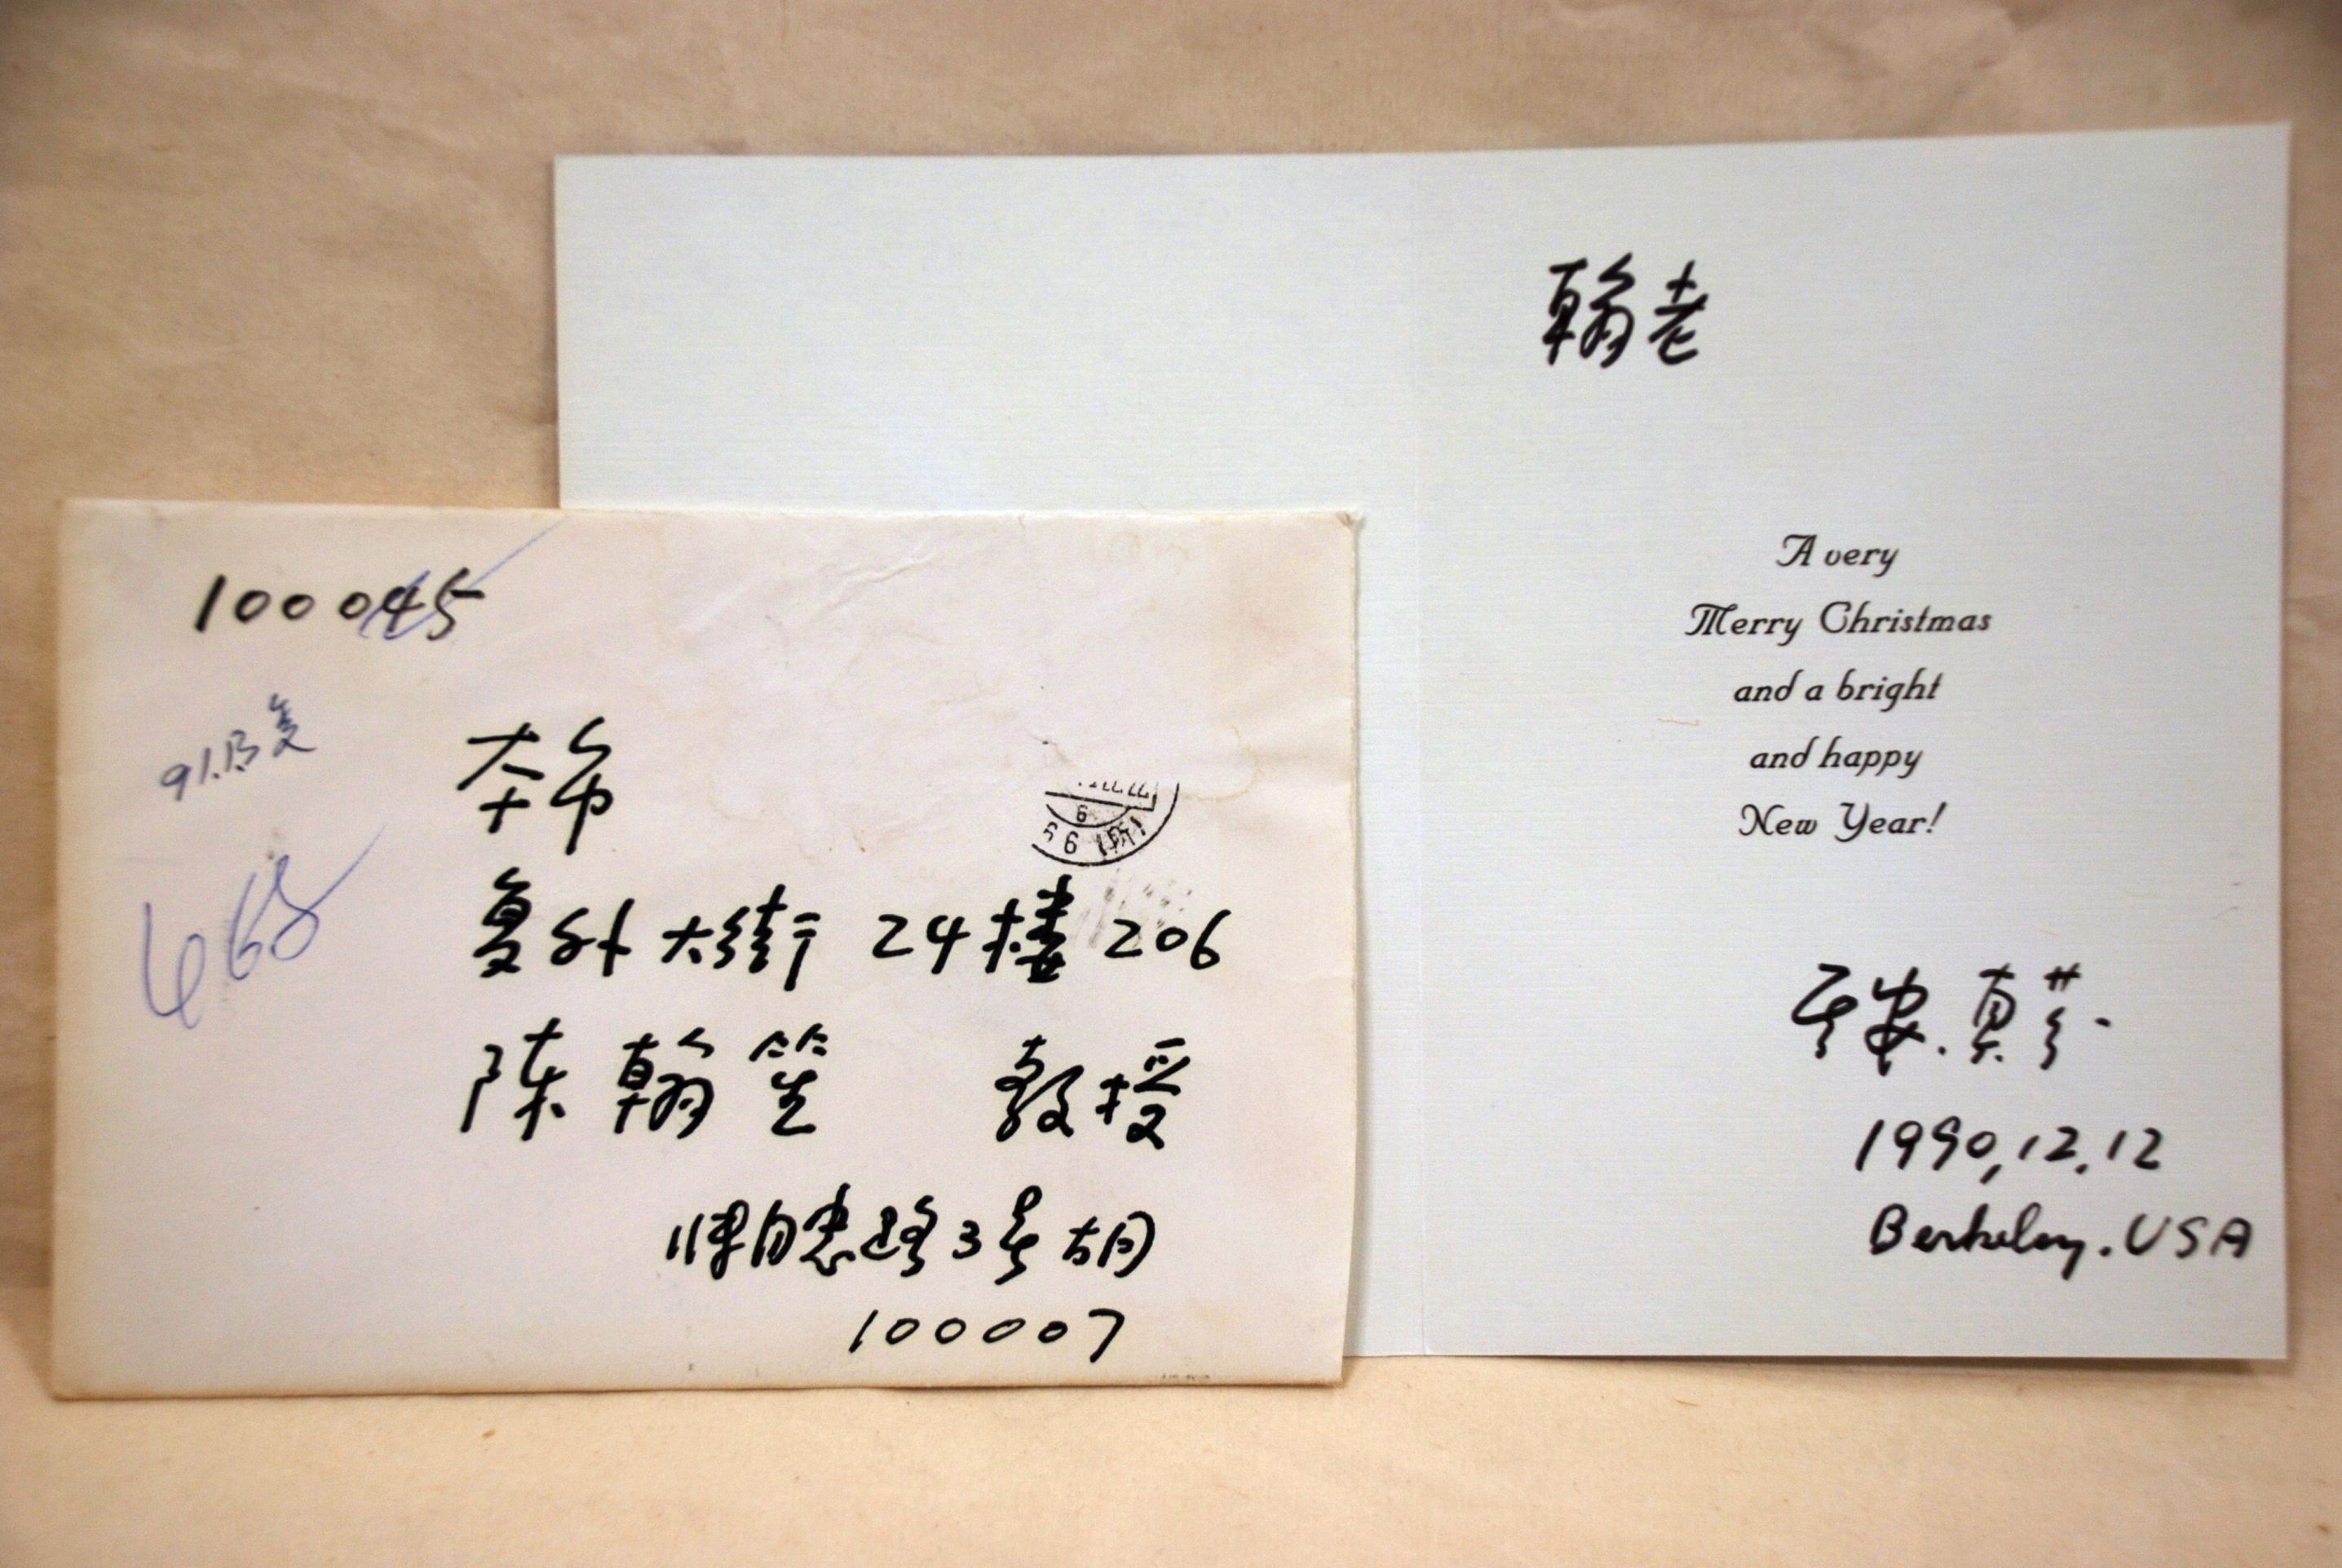 100045
本市
复外大街 24楼 206
陈翰笙 教授
3号胡
100007
翰老
A very
Merry Christmas
and a bright
and happy
New Year!
1990,12,12
Berkeley. USA